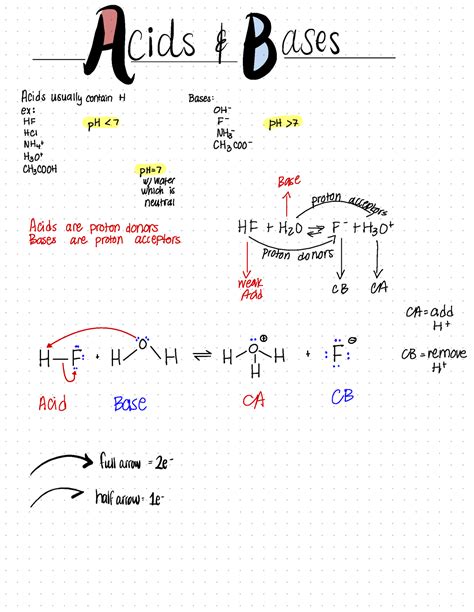 Acids & Bases
Acids usually contain H
ex:
HF
HCl
NH₄⁺
H₃O⁺
CH₃COOH
pH < 7
Bases:
OH⁻
F⁻
NH₃
CH₃COO⁻
pH >7
pH=7
w/ water
which is
neutral
Acids are proton donors
Bases are proton acceptors
Base
proton acceptors
HF + H₂O ⇌ F⁻ + H₃O⁺
proton donors
weak
Acid
CB
CA
CA = add
H⁺
CB = remove
H⁺
H–F + H O H ⇌ H O H H ⊕ + F ⊖
Acid
Base
CA
CB
full arrow = 2e⁻
half arrow = 1e⁻